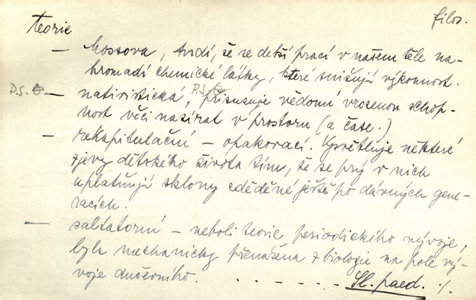 filos.
teorie
— Mossova, tvrdí, že se delší prací v našem těle na-
hromadí chemické látky, které snižují výkonnost.
P.S. — nativistická, P.S. přisuzuje vědomí vrozenou schop-
nost věci nazírat v prostoru (a čase.)
— rekapitulační – opakovací. Vysvětluje některé
zjevy dětského života tím, že se prý v nich
uplatňují sklony zděděné ještě po dávných gene-
racích.
— saltatorní – neboli teorie periodického vývoje,
byla mechanicky přenášena z biologie na pole vý-
voje duševního. Sl. paed. ·/.